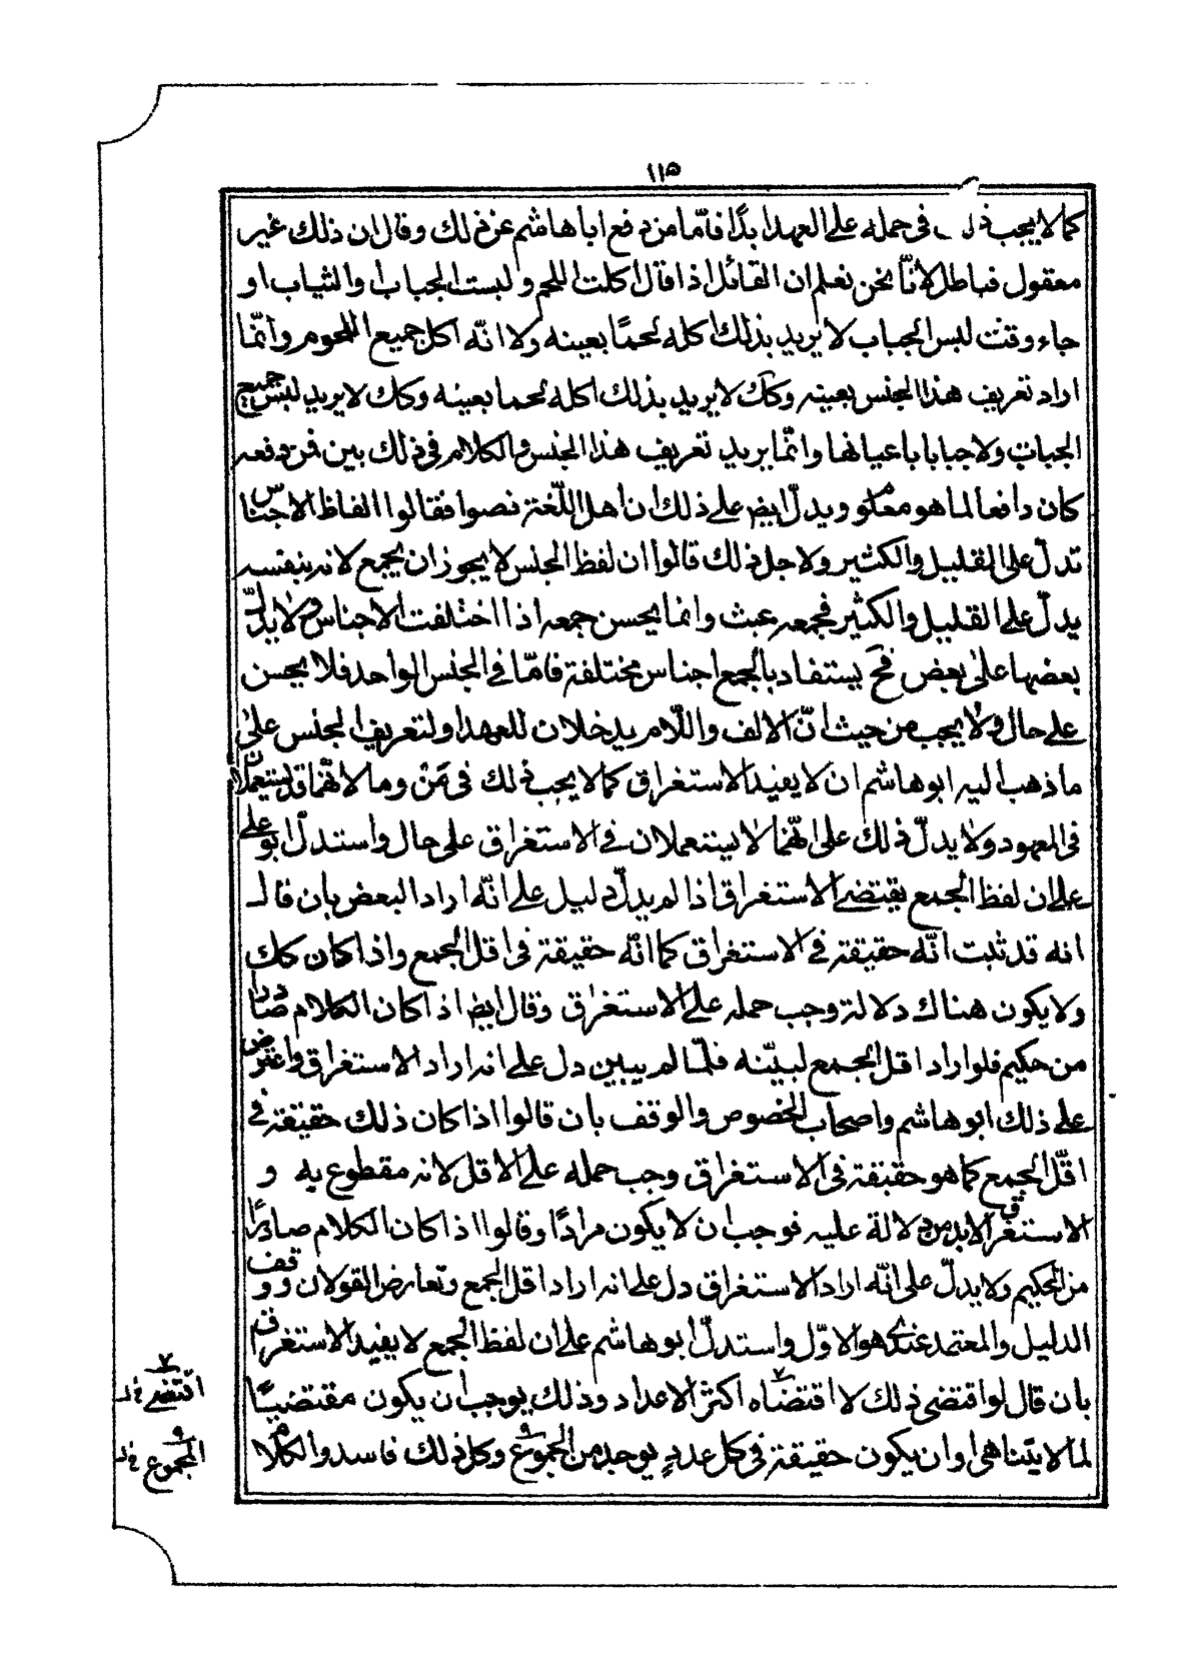 ١١٥
كما لا يجب ذلك في حمله على العهد ابدًا فامّا من دفع ابا هاشم عن ذلك وقال ان ذلك غير
معقول فباطل لانّا نحن نعلم ان القائل اذا قال اكلت اللحم ولبست الجباب والثياب او
جاء وقت لبس الجباب لا يريد بذلك اكله لحمًا بعينه ولا انّه اكل جميع اللحوم وانّما
اراد تعريف هذا الجنس بعينه وكك لا يريد بذلك اكله لحما بعينه وكك لا يريد لبس جميع
الجباب ولا جبابا باعيانها وانّما يريد تعريف هذا الجنس والكلام في ذلك بين فمن دفعه
كان دافعا لما هو معلوم ويدلّ ايض على ذلك ان اهل اللّغة نصوا فقالوا الفاظ الاجناس
تدلّ على القليل والكثير ولاجل ذلك قالوا ان لفظ الجنس لا يجوز ان يجمع لانه بنفسه
يدلّ على القليل والكثير فجمعه عبث وانما يحسن جمعه اذا اختلفت الاجناس ولا يدلّ
بعضها على بعض فح يستفاد بالجمع اجناس مختلفة فامّا في الجنس الواحد فلا يحسن
على حال ولا يجب من حيث انّ الالف واللّام يدخلان للعهد او لتعريف الجنس على
ما ذهب اليه ابو هاشم ان لا يفيد الاستغراق كما لا يجب ذلك في مَنْ وما لانّهما قد يستعملان
في المعهود ولا يدلّ ذلك على انّهما لا يستعملان في الاستغراق على حال واستدلّ ابو على
على ان لفظ الجمع يقتضى الاستغراق اذا لم يدلّ دليل على انّه اراد البعض بان قال
انه قد ثبت انّه حقيقة في الاستغراق كما انّه حقيقة في اقل الجمع واذا كان كك
ولا يكون هناك دلالة وجب حمله على الاستغراق وقال ايض اذا كان الكلام صادرا
من حكيم فلو اراد اقل الجمع لبيّنه فلمّا لم يبين دل على انه اراد الاستغراق واعترض
على ذلك ابو هاشم واصحاب الخصوص والوقف بان قالوا اذا كان ذلك حقيقة في
اقلّ الجمع كما هو حقيقة في الاستغراق وجب حمله على الاقل لانه مقطوع به و
الاستغراق لابد من دلالة عليه فوجب ان لا يكون مرادًا وقالوا اذا كان الكلام صادرًا
من الحكيم ولا يدلّ على انّه اراد الاستغراق دل على انه اراد اقل الجمع وتعارض القولان ووقف
الدليل والمعتمد عندى هو الاوّل واستدلّ ابو هاشم على ان لفظ الجمع لا يفيد الاستغراق
بان قال لو اقتضى ذلك لاقتضاه اكثر الاعداد وذلك يوجب ان يكون مقتضيًا
لما لا يتناهى او ان يكون حقيقة في كل عدد يوجد من الجموع وكل ذلك فاسد والكلام
٧
اقتضى
المجموع